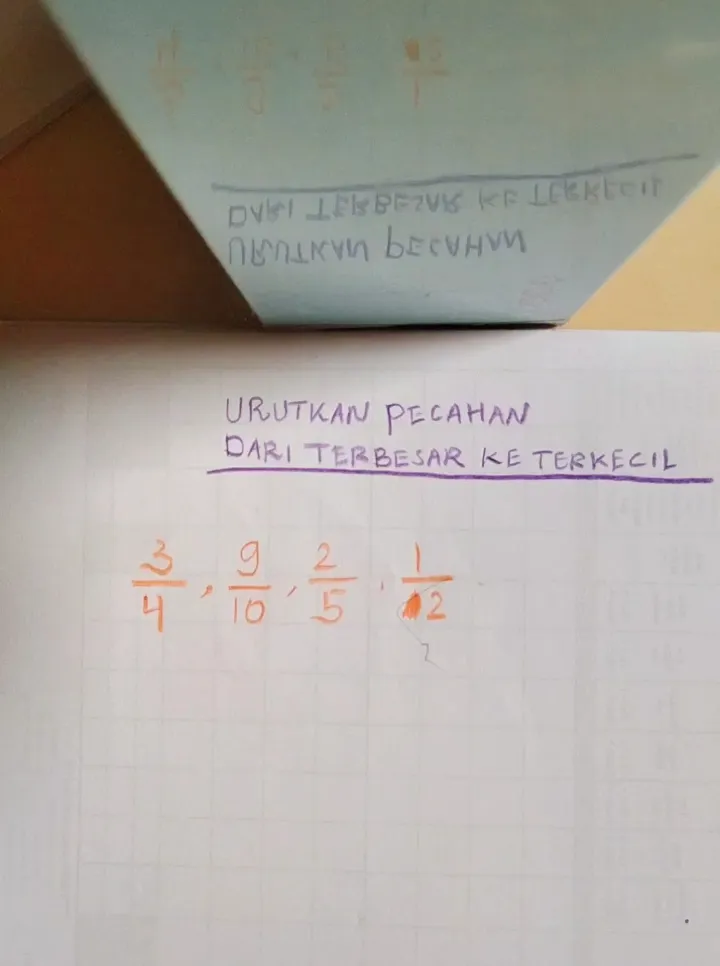 URUTKAN PECAHAN
DARI TERBESAR KE TERKECIL
3/4, 9/10, 2/5, 1/2